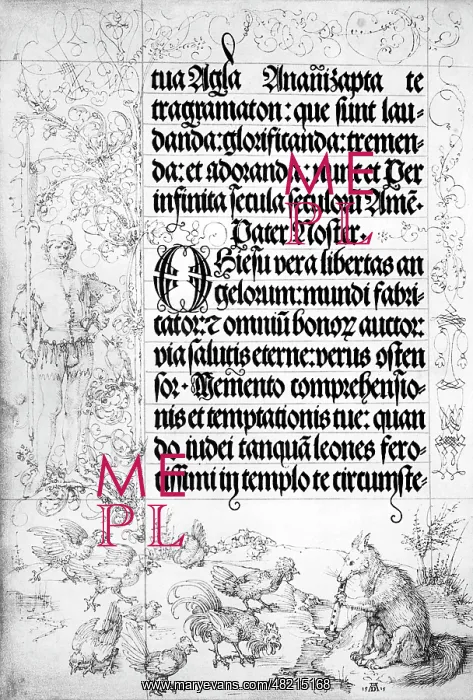 tua Agla Anam̃zapta te
tragramaton: que sunt lau⸗
danda: glorificanda: tremen⸗
da: et adoranda: nunc et Per
infinita secula seculorū Amē.
Pater Noster.
O Hiesu vera libertas an
gelorum: mundi fabri⸗
cator: ⁊ omniū bonoꝝ auctor:
via salutis eterne: verus osten
sor. Memento comprehensio⸗
nis et temptationis tue: quan
do iudei tanquā leones fero⸗
cissimi in templo te circumste⸗
ME
PL
ME
PL
www.maryevans.com/48215168